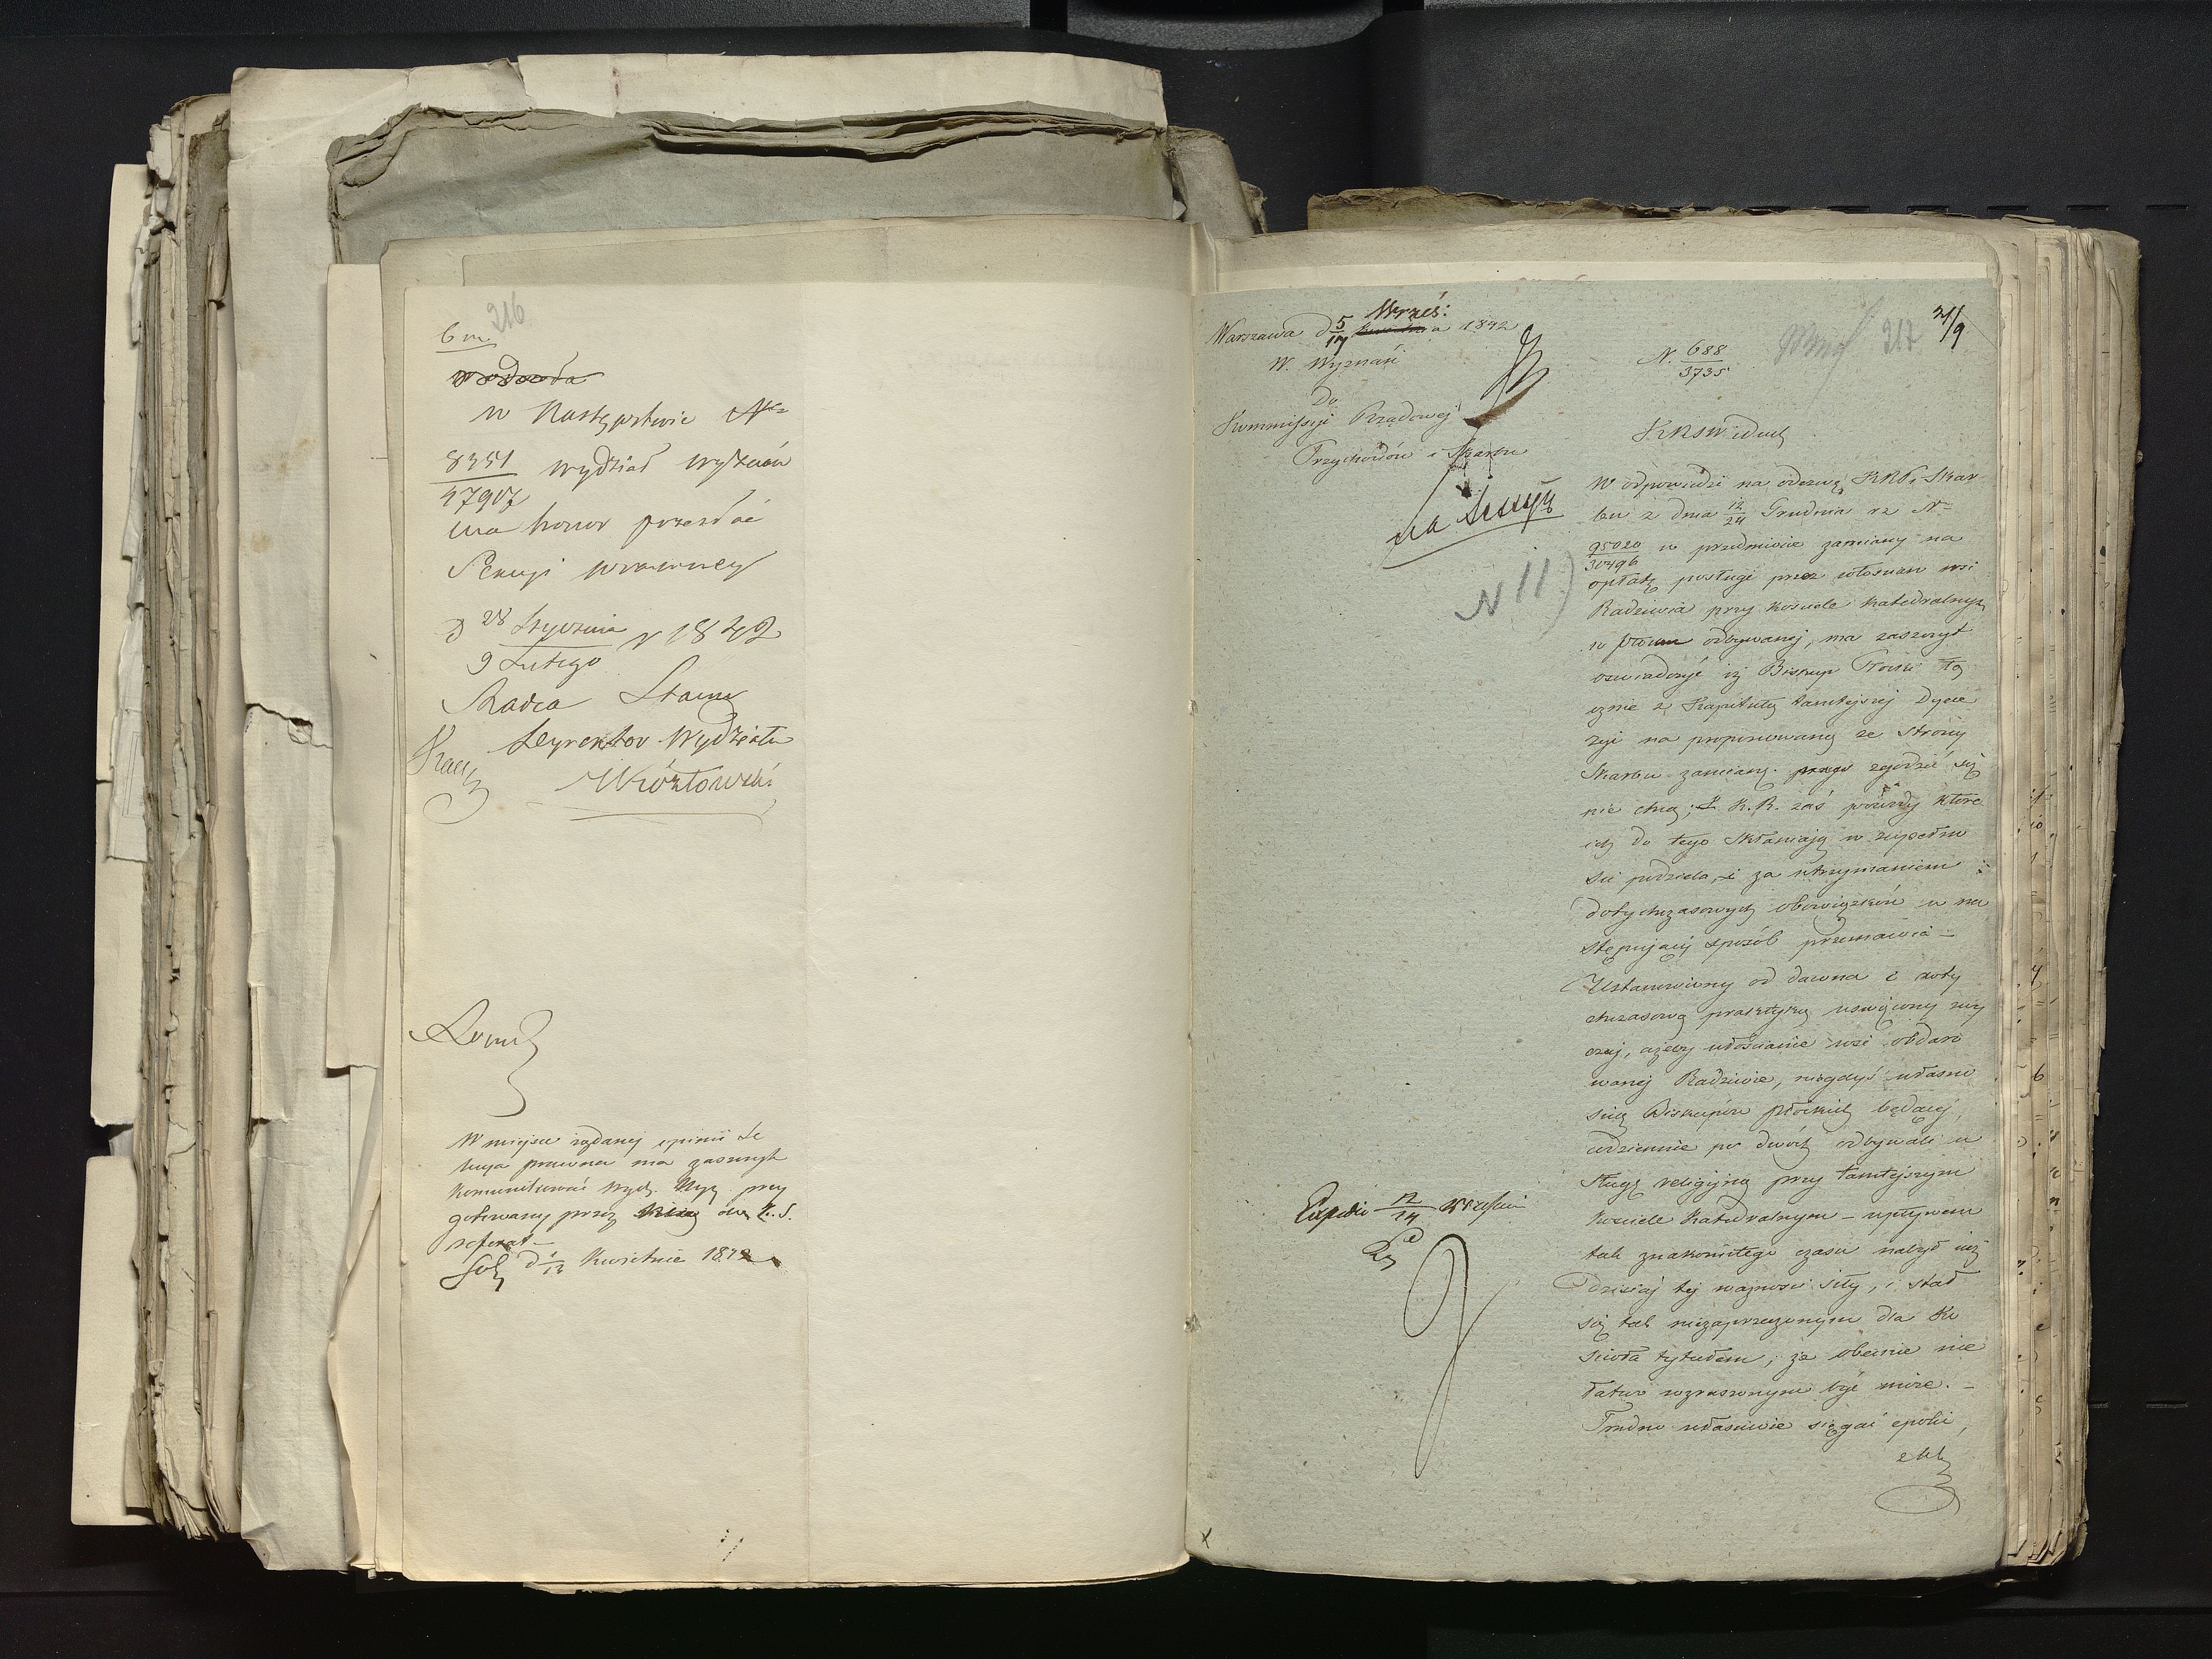 216
w Następstwie Nr
8351
47907
wydział wyznań
ma honor przesłać
Sekcyi prawney
d 28 Stycznia r 1842
9 Lutego
Radca Stanu
Dyrektor Wydziału
W miejscu żądanej opinii Se
kcya prawna ma zaszczyt
kommunikować Wydz. Wyz. przy
gotowany przez K. S.
referat
d 1/13 Kwietnia 1842
Wrześ:
Warszawa d 5/17 1842
W. Wyznań
Do
Kommissyi Rządowej
Przychodów i Skarbu
N. 688
3735
217
21/9
KRSW i Duch
W odpowiedzi na odezwę KRP i Skar
bu z dnia 12/24 Grudnia rz Nr
95020
30496
w przedmiocie zamiany na
opłatę posługi przez włościan wsi
Radziwia przy kościele katedralnym
w odbywanej, ma zaszczyt
oświadczyć iż Biskup Płocki łą
cznie z Kapitułą tamtejszej Dyece
zyi na proponowaną ze strony
Skarbu zamianę zgodzić się
nie chcą; K.R. zaś powody które
ich do tego skłaniają w zupełno
ści podziela, i za utrzymaniem
dotychczasowych obowiązków w na
stępujący sposób przemawia –
Ustanowiony od dawna i doty
chczasową praktyką uświęcony zwy
czaj, ażeby włościanie wsi obdaro
wanej Radziwie, niegdyś własno
ścią Biskupów płockich będącej,
codziennie po dwóch odbywali u
sługę religijną przy tamtejszym
kościele katedralnym – upływem
tak znakomitego czasu nabył już
dzisiaj tej ważności siły, i stał
się tak niezaprzeczonym dla Ko
ścioła tytułem, że obecnie nie
łatwo wzruszonym być może. –
Trudno właściwie sięgać epoki,
N 11)
Expedio 12/14 Września